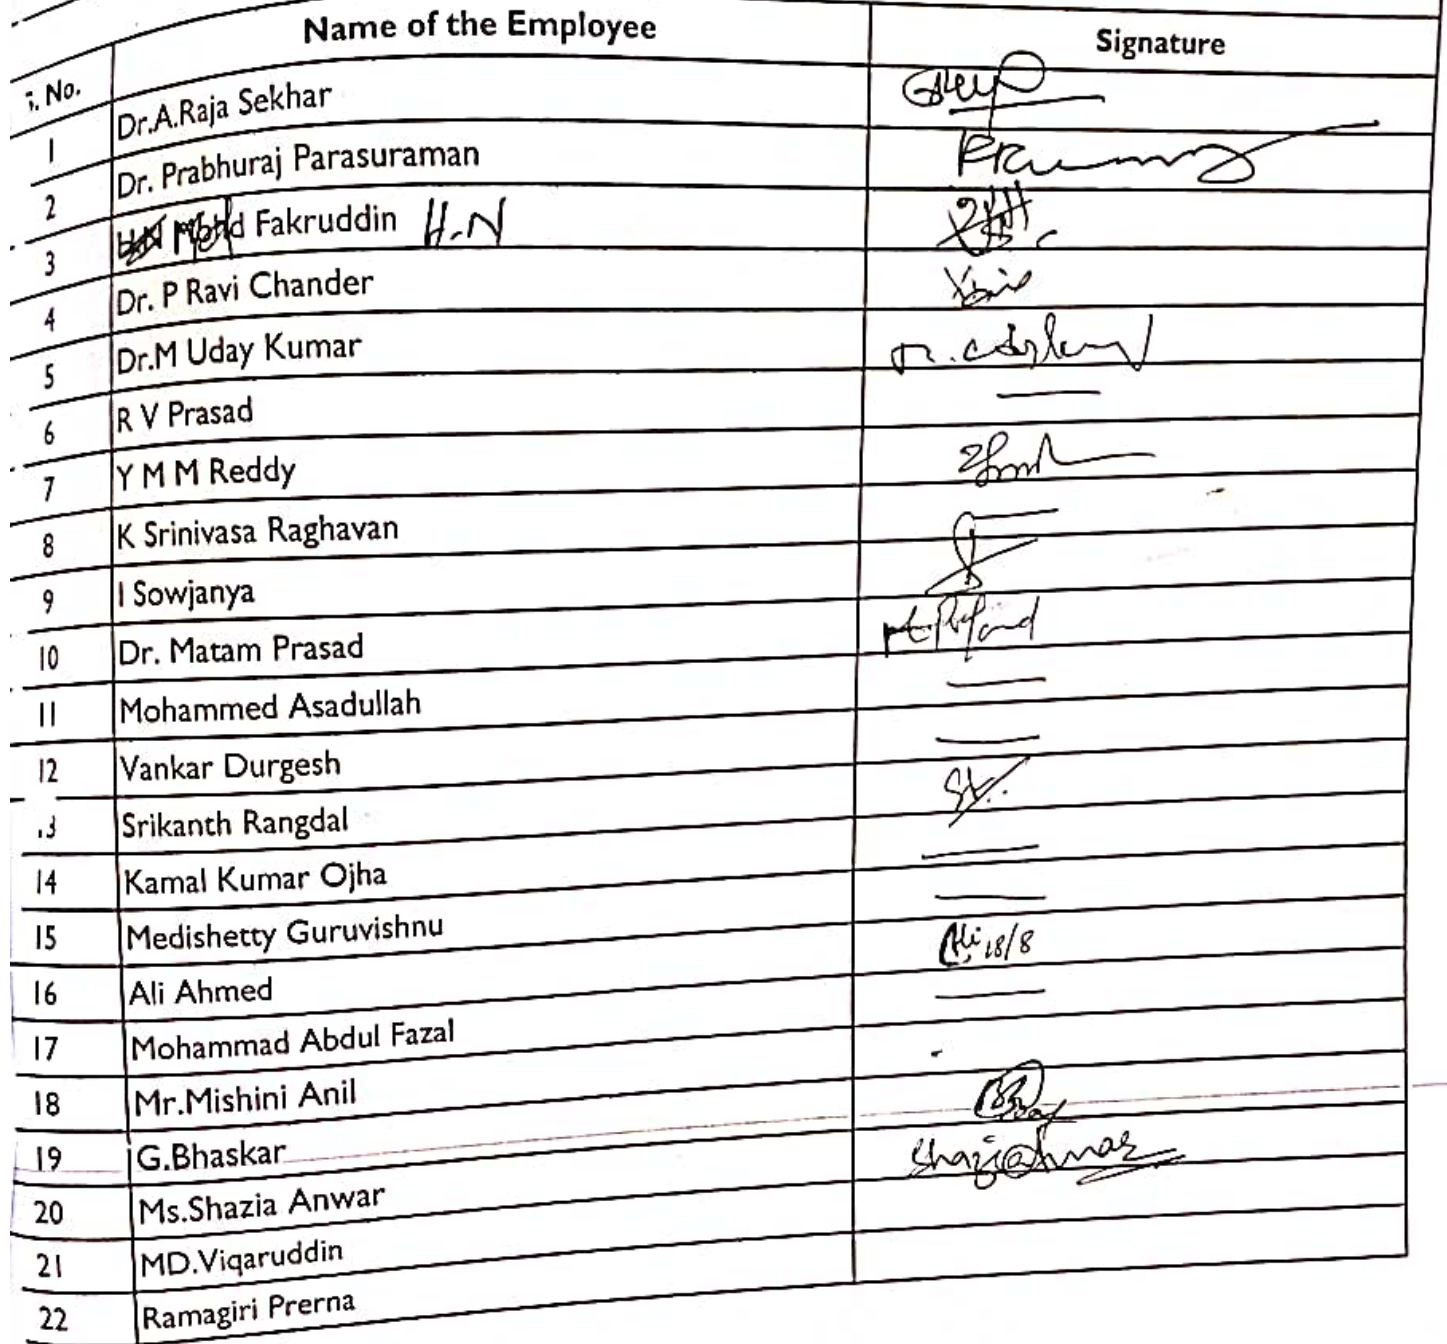 Name of the Employee Signature
S. No.
1 Dr.A.Raja Sekhar
2 Dr. Prabhuraj Parasuraman
3 Mohd Fakruddin H.N
4 Dr. P Ravi Chander
5 Dr.M Uday Kumar
6 R V Prasad
7 Y M M Reddy
8 K Srinivasa Raghavan
9 I Sowjanya
10 Dr. Matam Prasad
11 Mohammed Asadullah
12 Vankar Durgesh
13 Srikanth Rangdal
14 Kamal Kumar Ojha
15 Medishetty Guruvishnu
16 Ali Ahmed Ali 18/8
17 Mohammad Abdul Fazal
18 Mr.Mishini Anil
19 G.Bhaskar
20 Ms.Shazia Anwar
21 MD.Viqaruddin
22 Ramagiri Prerna